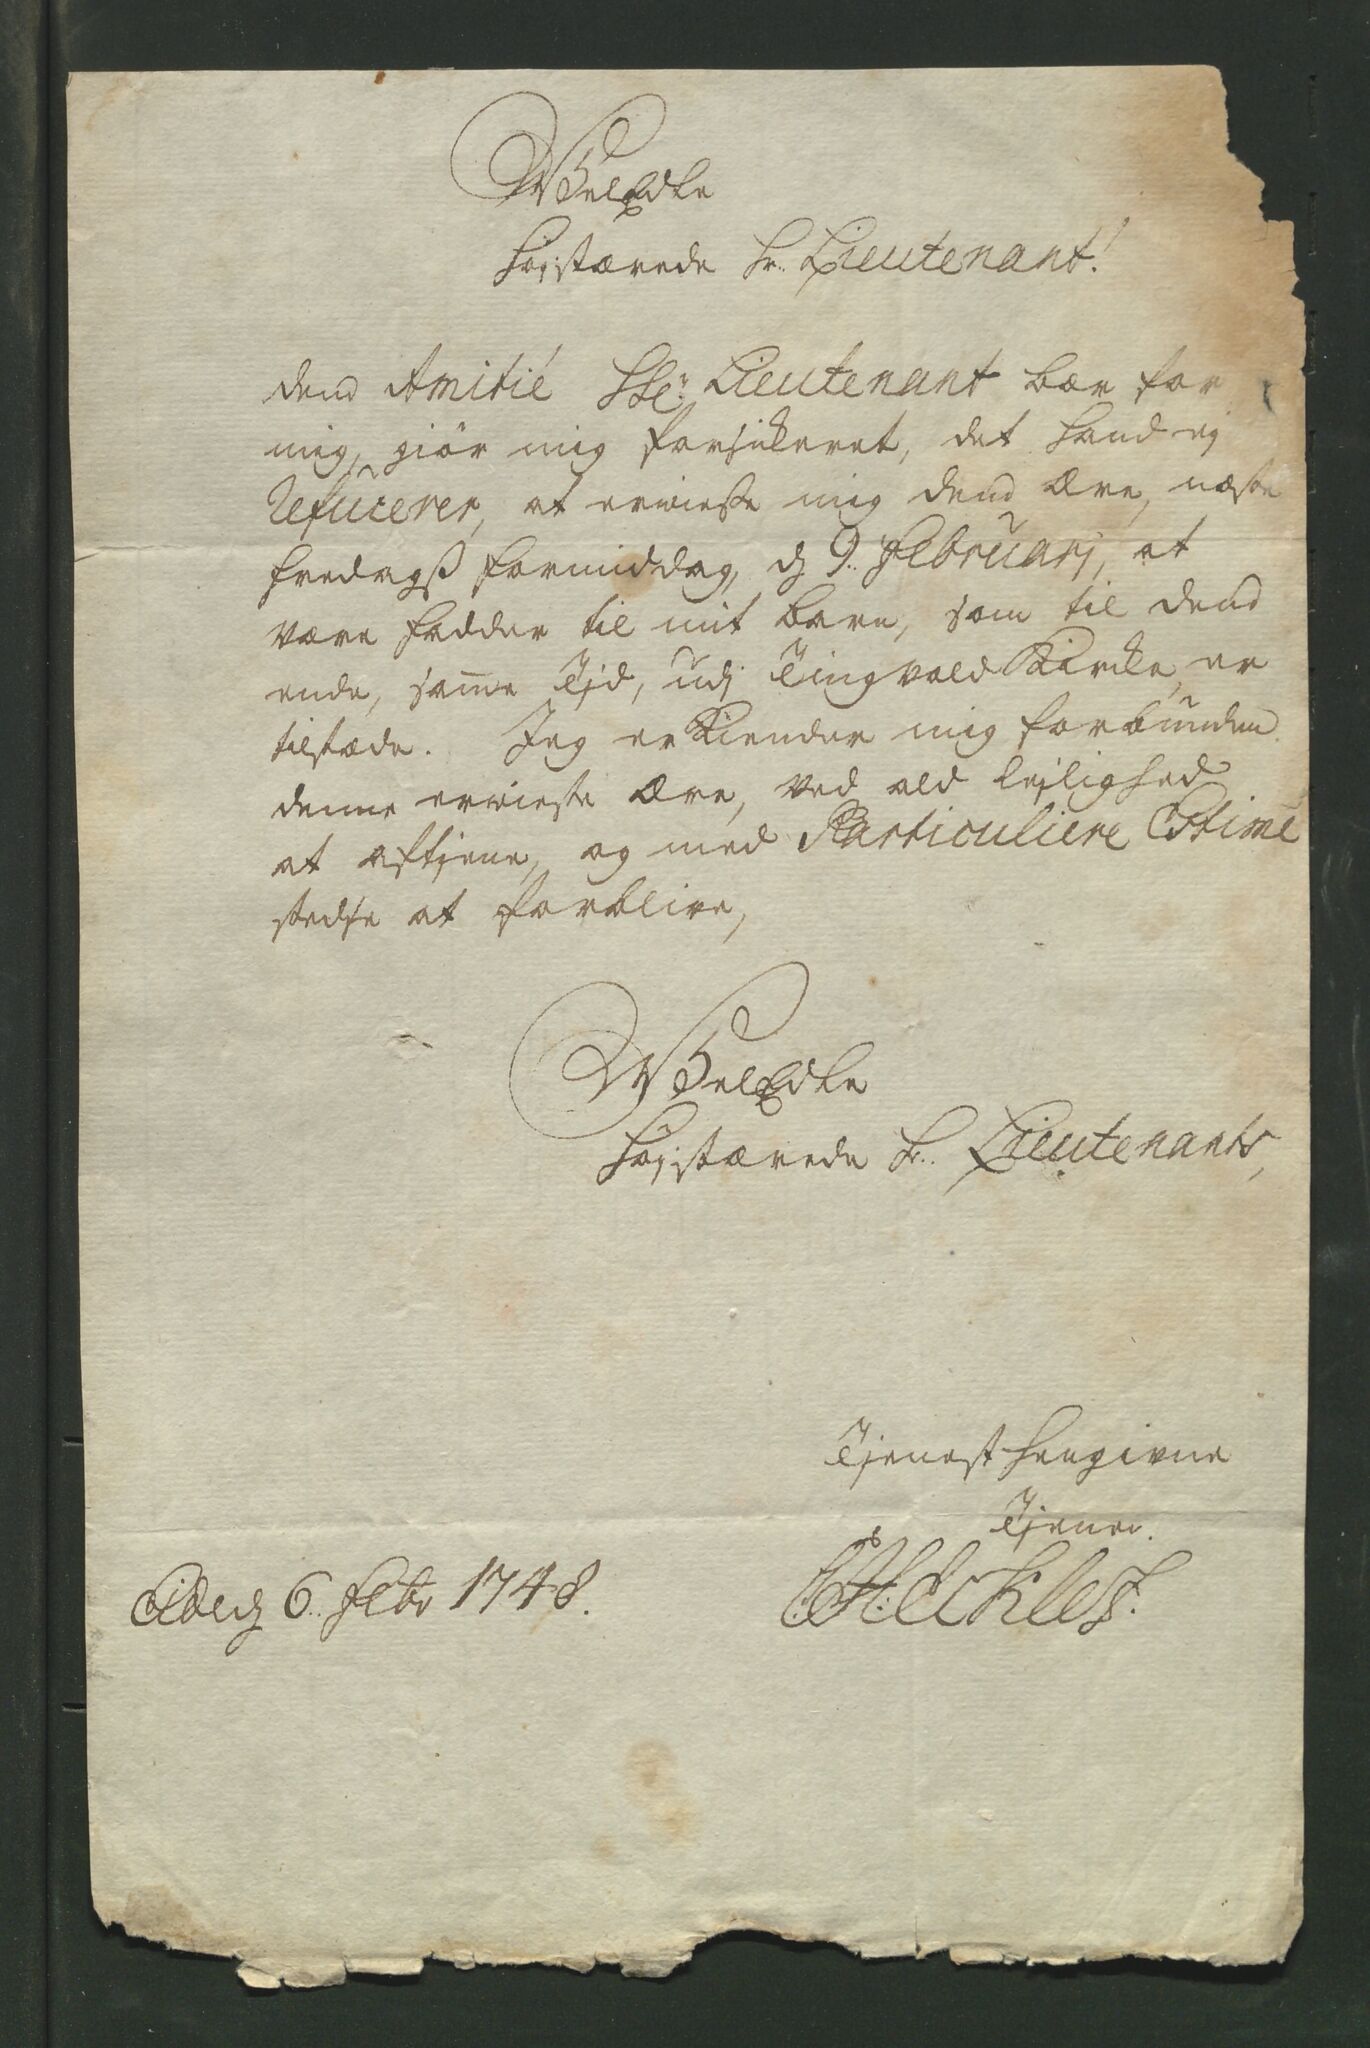 WelEdle
Højstærede Hr. Lieutenant!
Dend Amitié Hr: Lieutenant bær for
mig, giør mig forsikeret, det hand ej
refucerer, at erwiese mig dend Ære, næste
fredagß formiddag, d 9. Februarj, at
være fadder til mit barn, som til dend
ende, samme Tjd, udj Tingvold Kirke, er
tilstæde. Jeg erkiender mig forbunden
denne erwieste Ære, ved ald lejlighed
at aftjene, og med Particuliere Estime
stedse at forblive,
WelEdle
Højstærede Hr. Lieutenants,
Tjenst hengivne
Tjener.
Eide d 6. Febr 1748.